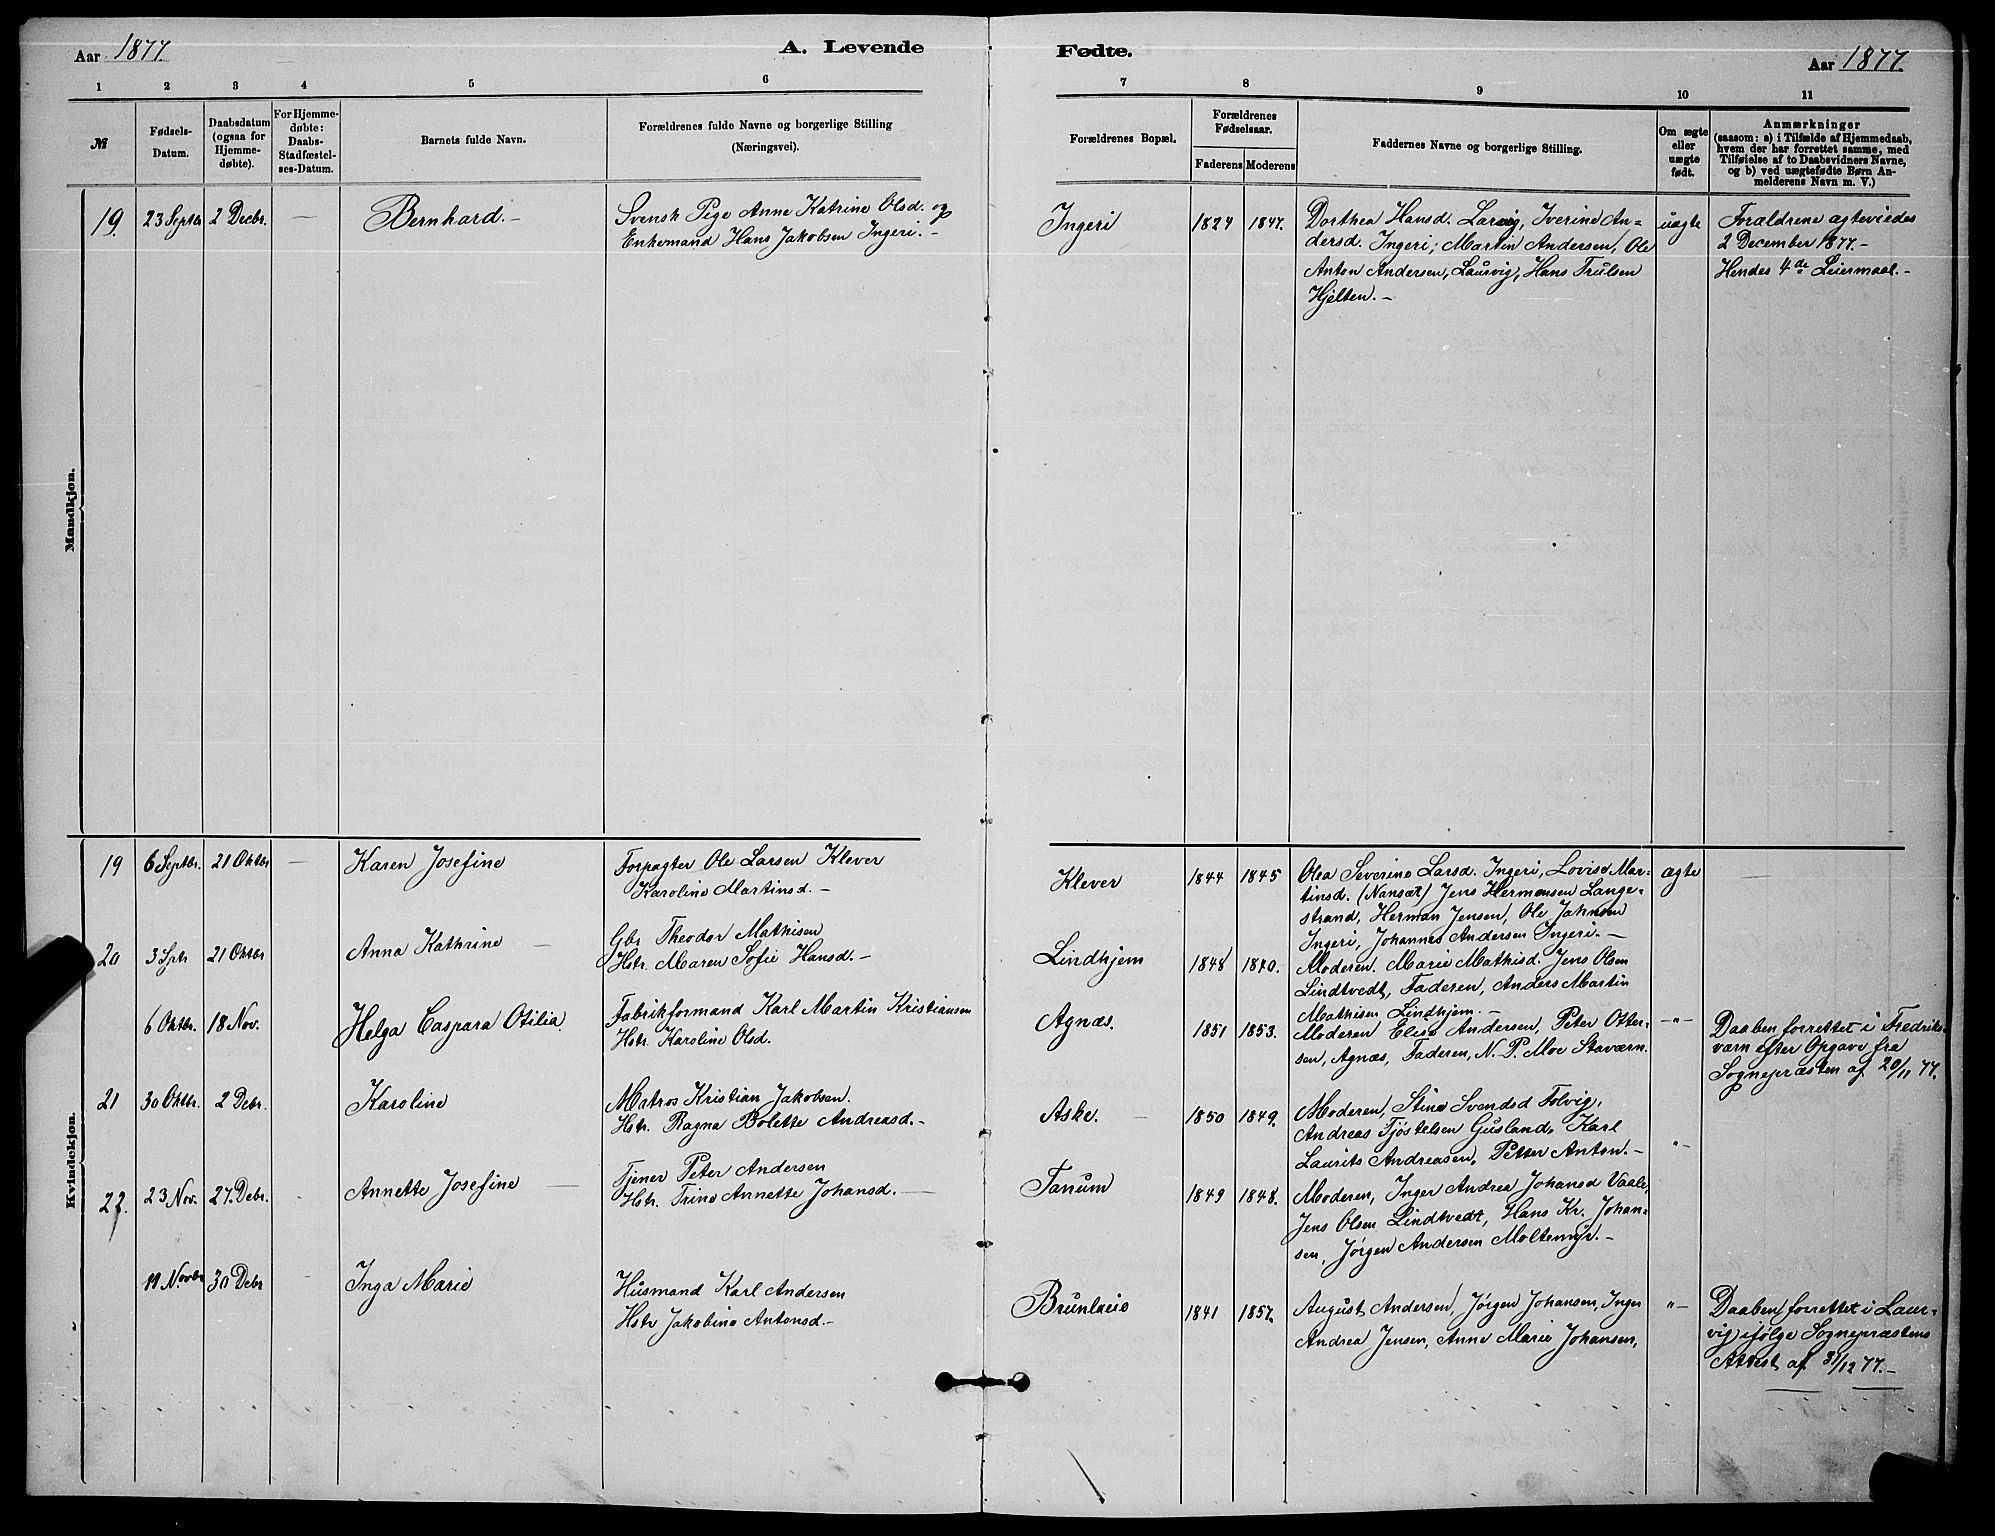 Aar 1877.
A. Levende Fødte.
Aar 1877.
1 2 3 4 5 6 7 8 9 10 11
№
Fødsels-
Datum.
Daabsdatum
(ogsaa for
Hjemme-
døbte).
For Hjemme-
døbte:
Daabs-
Stadfæstel-
ses-Datum.
Barnets fulde Navn.
Forældrenes fulde Navne og borgerlige Stilling
(Næringsvei).
Forældrenes Bopæl.
Forældrenes
Fødselsaar.
Faderens Moderens
Faddernes Navne og borgerlige Stilling.
Om ægte
eller
uægte
født.
Anmærkninger
(saasom: a) i Tilfælde af Hjemmedaab,
hvem der har forrettet samme, med
Tilføielse af to Daabsvidners Navne,
og b) ved uægtefødte Børn An-
melderens Navn m. V.)
Mandkjøn.
19. 23 Septbr 2 Decbr. — Bernhard. —
Svensk Pige Anne Katrine Olsd. og
Enkemand Hans Jakobsen Ingeri. —
Ingeri 1824 1847.
Dorthea Hansd. Larvig, Iverine An-
dersd. Ingeri; Martin Andersen, Ole
Anton Andersen, Laurvig, Hans Trulsen
Hjelten. —
uægte
Forældrene ægteviedes
2 December 1877. —
Hendes 4de Leiermaal. —
Kvindekjøn.
19 6 Septbr. 21 Oktbr — Karen Josefine
Forpagter Ole Larsen Klever
Karoline Martinsd. —
Klever 1844 1845
Olea Severine Larsd. Ingeri, Lovise Mar-
tinsd. (Nansæt) Jens Hermansen Lange-
strand, Herman Jensen, Ole Jahnsen
Ingeri, Johannes Andersen Ingeri. —
ægte —
20 3 Sptr 21 Oktbr Anna Kathrine —
Gbr. Theodor Mathisen
Hstr. Maren Sofie Hansd. —
Lindhjem 1848 1840.
Moderen. Marie Mathisd. Jens Olsen
Lindtvedt, Faderen, Anders Martin
Mathisen Lindhjem. —
6 Oktbr. 18 Nov. Helga Caspara Otilia.
Fabrikformand Karl Martin Kristiansen
Hstr. Karoline Olsd.
Agnæs. 1851 1853.
Moderen Elise Andersen, Peter Otter-
sen, Agnæs, Faderen, N. P. Moe Staværn.
—"—
Daaben forrettet i Fredriks-
værn efter Opgave fra
Sognepræsten af 20/11 77.
21 30 Oktbr. 2 Debr. Karoline
Matros Kristian Jakobsen.
Hstr. Ragna Bolette Andreasd. —
Aske. 1850 1849.
Moderen, Stine Svendsd Folvig,
Andreas Tjøstelsen Gusland, Karl
Laurits Andreasen, Petter Anton. —
"—
22. 23 Nov. 27. Debr. Annette Josefine —
Tjener Peter Andersen
Hstr. Trine Annette Johansd. —
Tanum 1849 1848.
Moderen, Inger Andrea Johansd Vaale,
Jens Olsen Lindtvedt, Hans Kr. Johan-
sen, Jørgen Andersen Moltemyr. —
11 Novbr 30 Debr Inga Marie
Husmand Karl Andersen
Hstr Jakobine Antonsd. —
Brunlaie 1841 1857.
August Andersen, Jørgen Johansen, Inger
Andrea Jensen, Anne Marie Johansen,
"—
Daaben forrettet i Laur-
vig ifølge Sognepræstens
Attest af 31/12 77. —